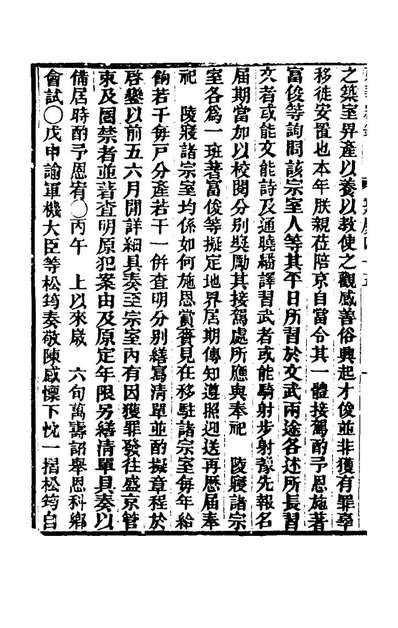 之築室畀產以養以教使之觀感善俗興起才俊並非獲有罪辜
移徙安置也本年朕親莅陪京自當令其一體接駕酌予恩施著
富俊等詢問該宗室人等其平日所習於文武兩途各述所長習
文者或能文能詩及通曉繙譯習武者或能騎射步射豫先報名
屆期當加以校閱分別獎勵其接駕處所應與奉祀 陵寢諸宗
室各為一班著富俊等擬定地界居期傳知遵照迎送再歷屆奉
祀 陵寢諸宗室均係如何施恩賞賚見在移駐諸宗室每年給
餉若干每戶分產若干一併查明分別繕寫清單並酌擬章程於
啓鑾以前五六月間詳細具奏至宗室內有因獲罪發往盛京管
束及圈禁者並著查明原犯案由及原定年限另繕清單具奏以
備居時酌予恩宥○丙午 上以來歲 六旬萬壽詔舉恩科鄉
會試○戊申諭軍機大臣等松筠奏敬陳感懷下忱一摺松筠自